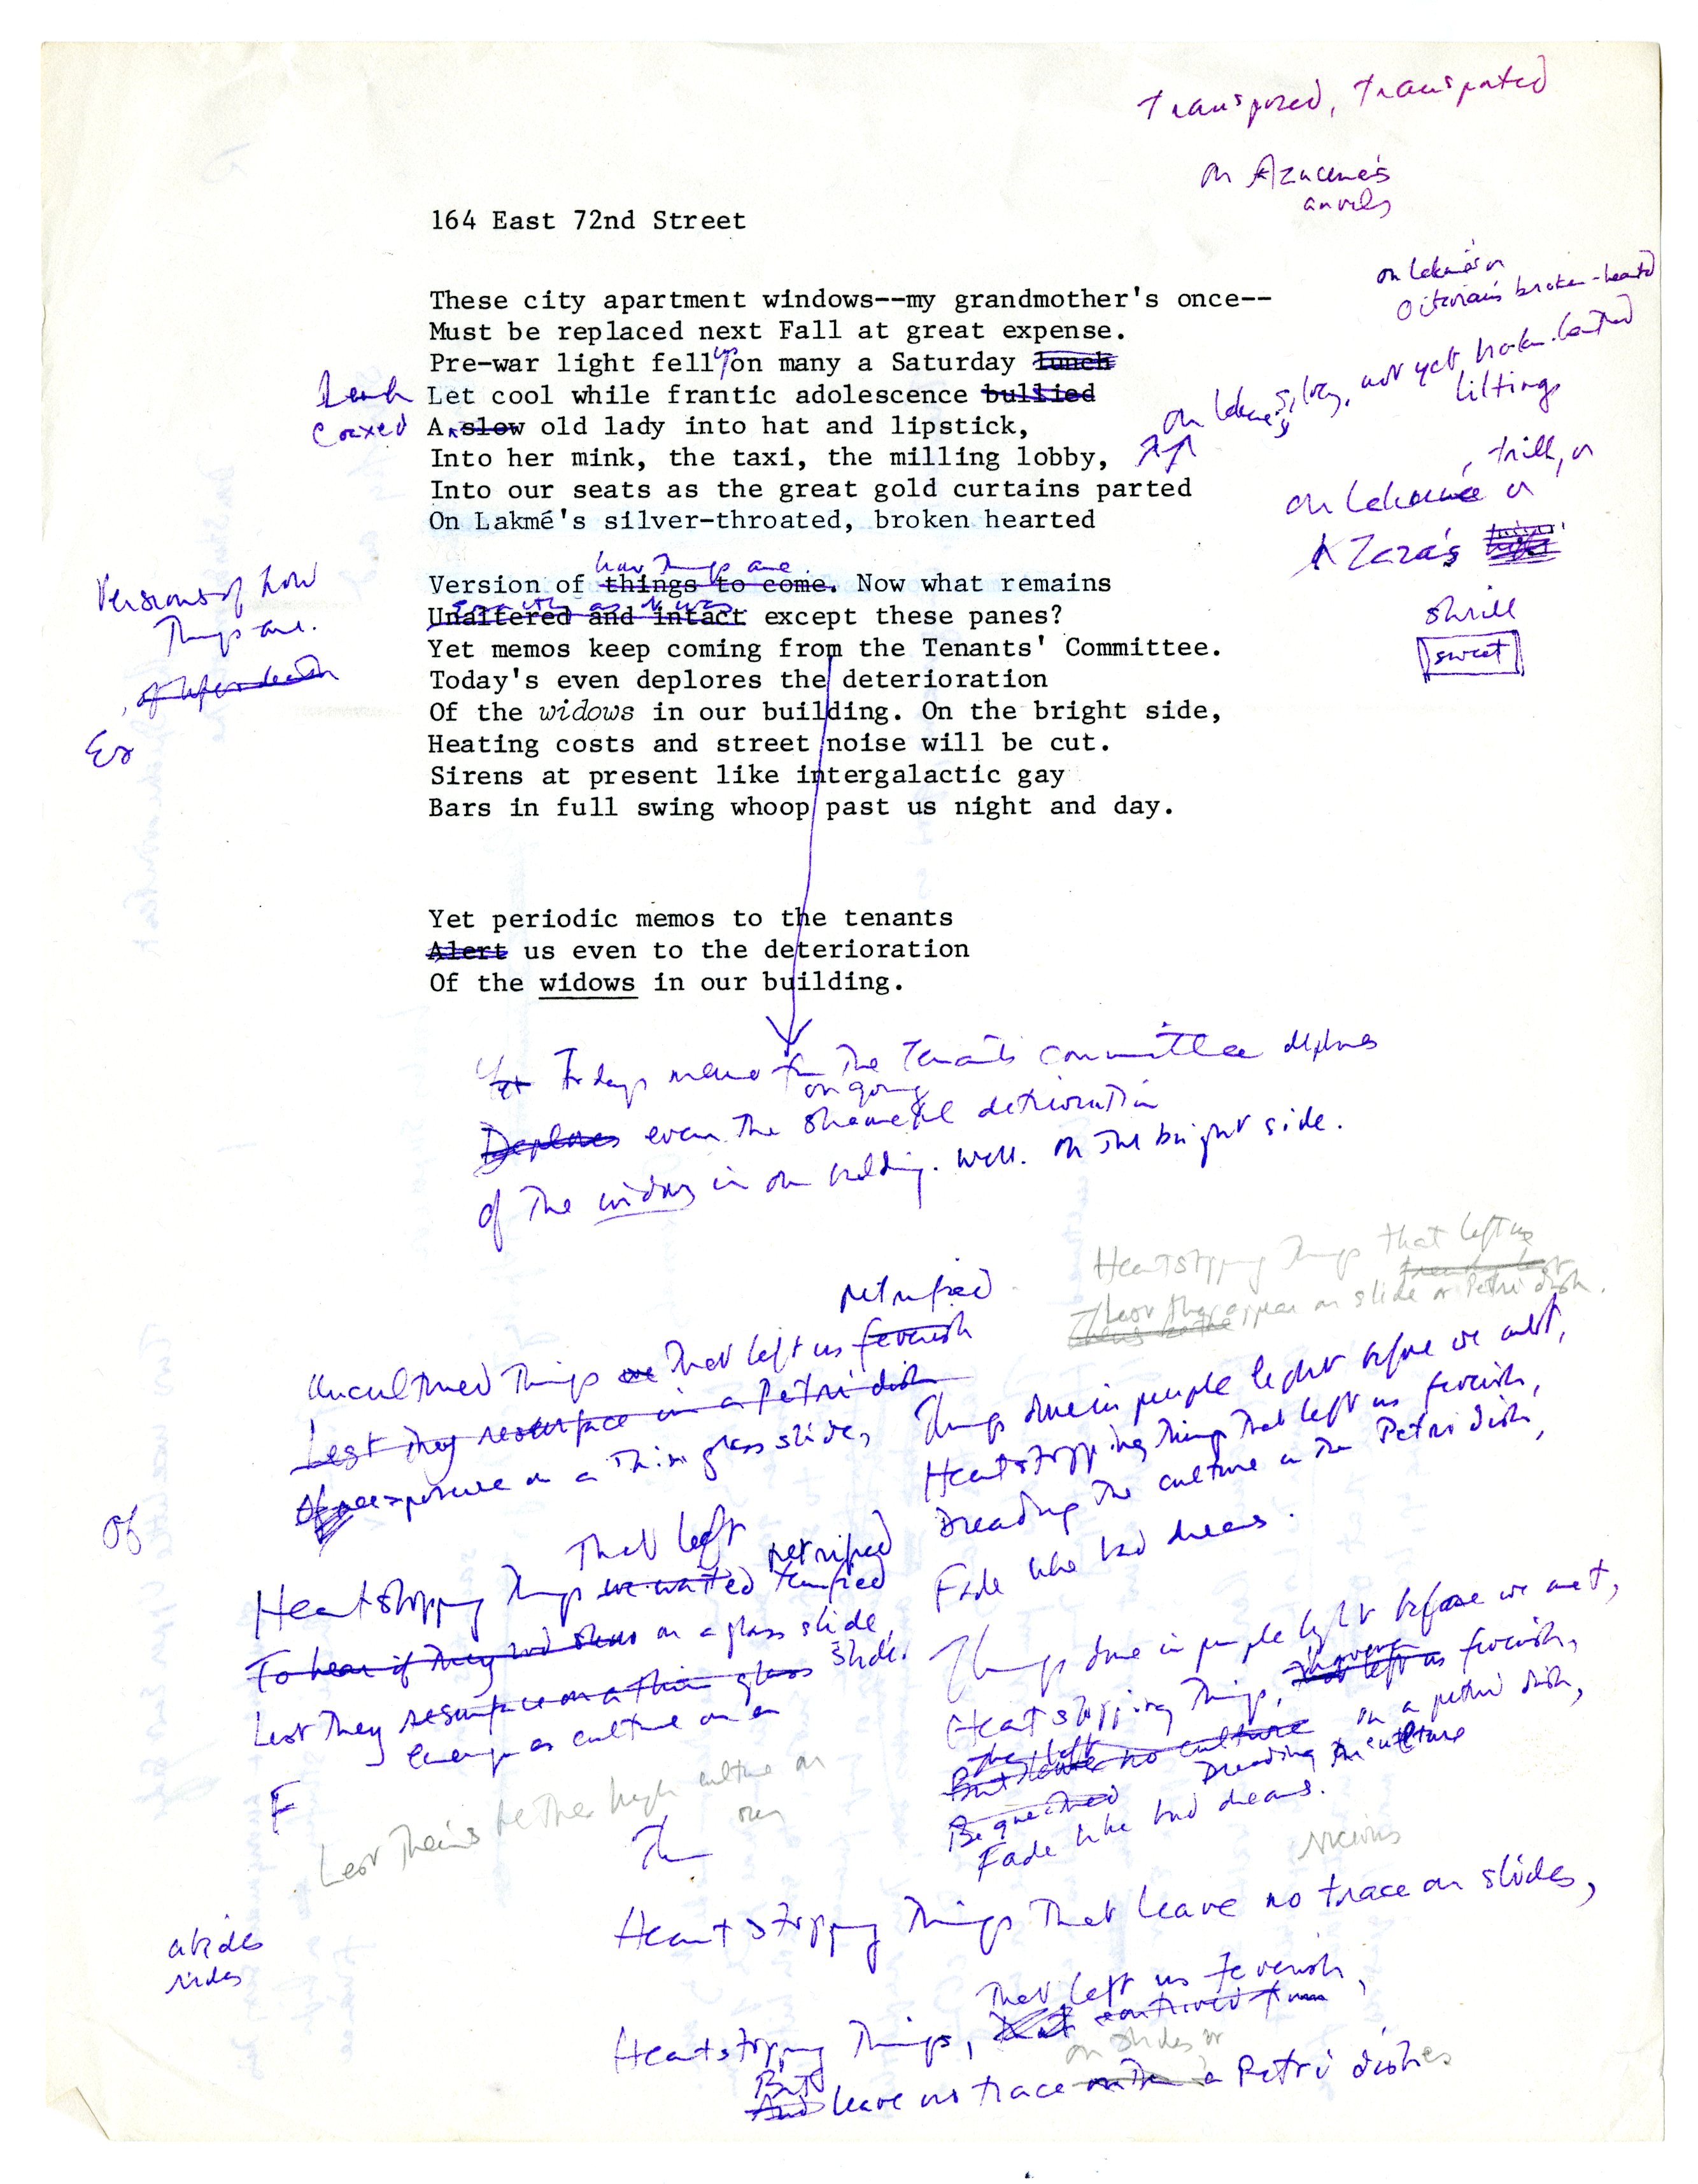 Transposed, Transpated
on Azucena's
anvils
164 East 72nd Street
on Lakmé's or
Octavian's broken-hearted
These city apartment windows--my grandmother's once--
Must be replaced next Fall at great expense.
up
Pre-war light fell on many a Saturday lunch
not yet broken-hearted
liltings
Let cool while frantic adolescence bullied
Coaxed
A slow old lady into hat and lipstick,
Into her mink, the taxi, the milling lobby,
trill, or
Into our seats as the great gold curtains parted
on Lakmé's or
On Lakmé's silver-throated, broken hearted
Zaza's
how things are.
Version of things to come. Now what remains
Versions of how
things are.
shrill
sweet
exactly as it was
Unaltered and intact except these panes?
Yet memos keep coming from the Tenants' Committee.
Today's even deplores the deterioration
Of the widows in our building. On the bright side,
Ex
Heating costs and street noise will be cut.
Sirens at present like intergalactic gay
Bars in full swing whoop past us night and day.
Yet periodic memos to the tenants
Alert us even to the deterioration
Of the widows in our building.
Yet Today's memo from the Tenants Committee deplores
ongoing
Deplores even the shameful deterioration
Of the widows in our building. Well. On the bright side.
Heartstopping things that left us
Lest they appear on slide or Petri dish.
petrified
Uncultured things that left us feverish
Lest they resurface in a Petri dish
exposure on a thin glass slide,
Things done in purple light before we met,
Heartstopping things that left us feverish,
Dreading the culture in the Petri dish,
Fade like bad dreams.
Of
that left petrified
Heartstopping things we waited terrified
To hear if they had shown on a glass slide,
Lest they resurface on a thin glass slide.
emerge as culture on a
F
Lest theirs be the high culture on
our
Things done in purple light before we met,
Heartstopping things, that left us feverish,
they left
But leave no culture on a petri dish,
Dreading the culture
Bequeathed
Fade like bad dreams.
Th
vicious
Heartstopping things that leave no trace on slides,
abides
sides
that left us feverish,
Heartstopping things,
on slides or
But
And leave no trace on the a Petri dishes